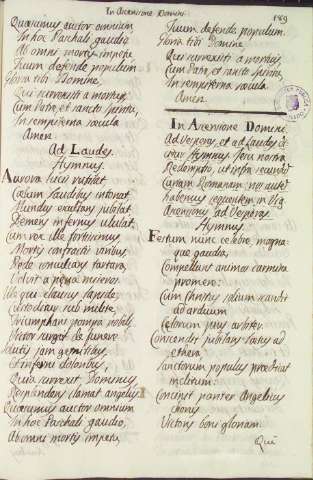 In Ascensione Domini
159
Quaesumus auctor omnium
In hoc Paschali gaudio,
Ab omni mortis impetu
Tuum defende populum
Gloria tibi Domine,
Qui surrexisti a mortuis,
Cum Patre, et sancto Spiritu,
In sempiterna saecula.
Amen.
Ad Laudes.
Hymnus.
Aurora lucis rutilat
Caelum laudibus intonat
Mundus exultans jubilat,
Gemens infernus ululat.
Cum rex ille fortissimus,
Mortis confractis viribus,
Pede conculcans tartara,
Solvit a poena miseros.
Ille qui clausus lapide,
Custoditur sub milite,
Triumphans pompa nobili,
Victor surgit de funere.
Solutis jam gemitibus,
Et inferni doloribus,
Quia surrexit Dominus,
Resplendens clamat angelus.
Quaesumus auctor omnium
In hoc Paschali gaudio,
Ab omni mortis impetu,
Tuum defende populum.
Gloria tibi Domine,
Qui surrexisti a mortuis,
Cum Patre, et sancto Spiritu,
In sempiterna saecula
Amen.
In Ascensione Domini.
Ad Vesperas, et ad Laudes
Hymnus Jesu nostra
Redemptio, ut infra secundum
Curiam Romanam; nos autem
habemus sequentem in Die
Ascensionis ad Vesperas
Hymnus.
Festum nunc celebre, magna-
que gaudia,
Compellunt animos carmina
promere:
Cum Christus solium scandit
ad arduum
Caelorum pius arbiter.
Conscendit jubilans laetus ad
aethera,
Sanctorum populus praedicat
inclitum:
Concinit pariter Angelicus
chorus
Victoris boni gloriam.
Qui